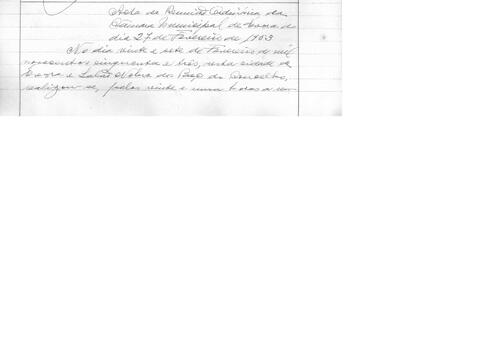 Acta da Reunião Ordinária da
Câmara Municipal de Évora do
dia 27 de Fevereiro de 1953
No dia vinte e sete de Fevereiro de mil
novecentos e cinquenta e três, nesta cidade de
Évora e Salão Nobre dos Paços do Concelho,
realizou-se, pelas vinte e uma horas a reu-